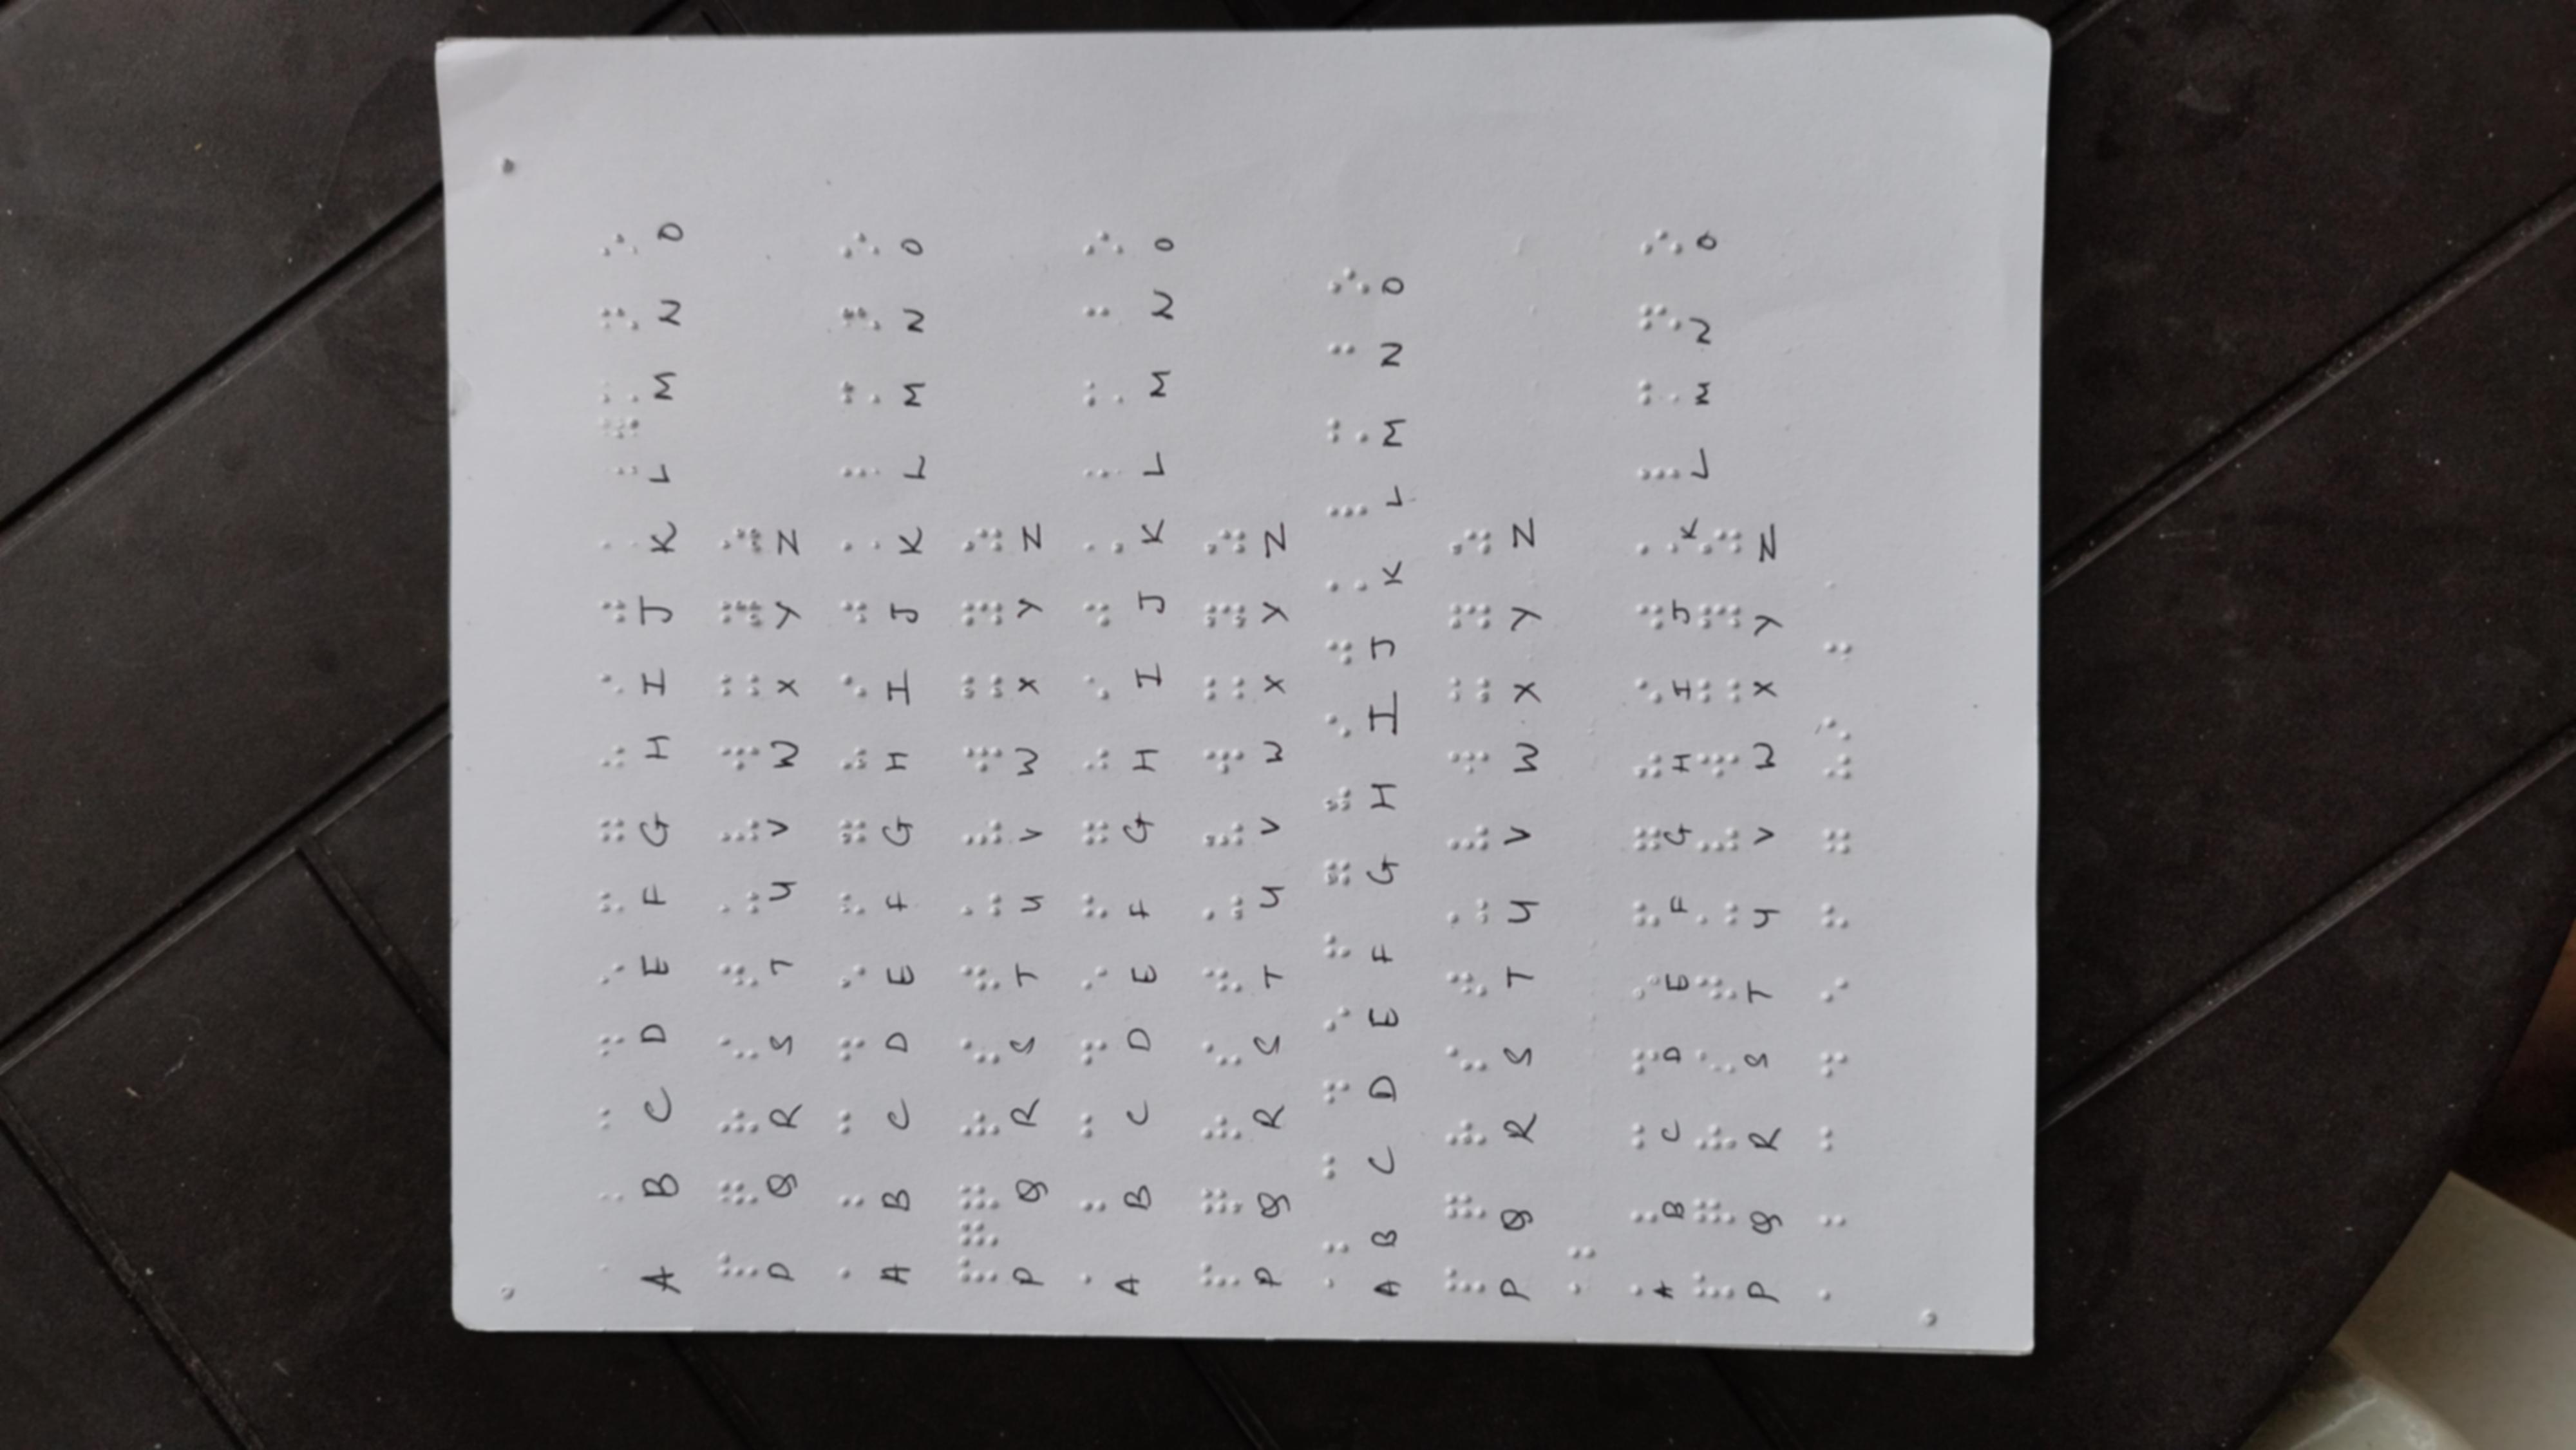 A B C D E F G H I J K L M N O
P Q R S T U V W X Y Z
A B C D E F G H I J K L M N O
P Q R S T U V W X Y Z
A B C D E F G H I J K L M N O
P Q R S T U V W X Y Z
A B C D E F G H I J K L M N O
P Q R S T U V W X Y Z
A B C D E F G H I J K L M N O
P Q R S T U V W X Y Z